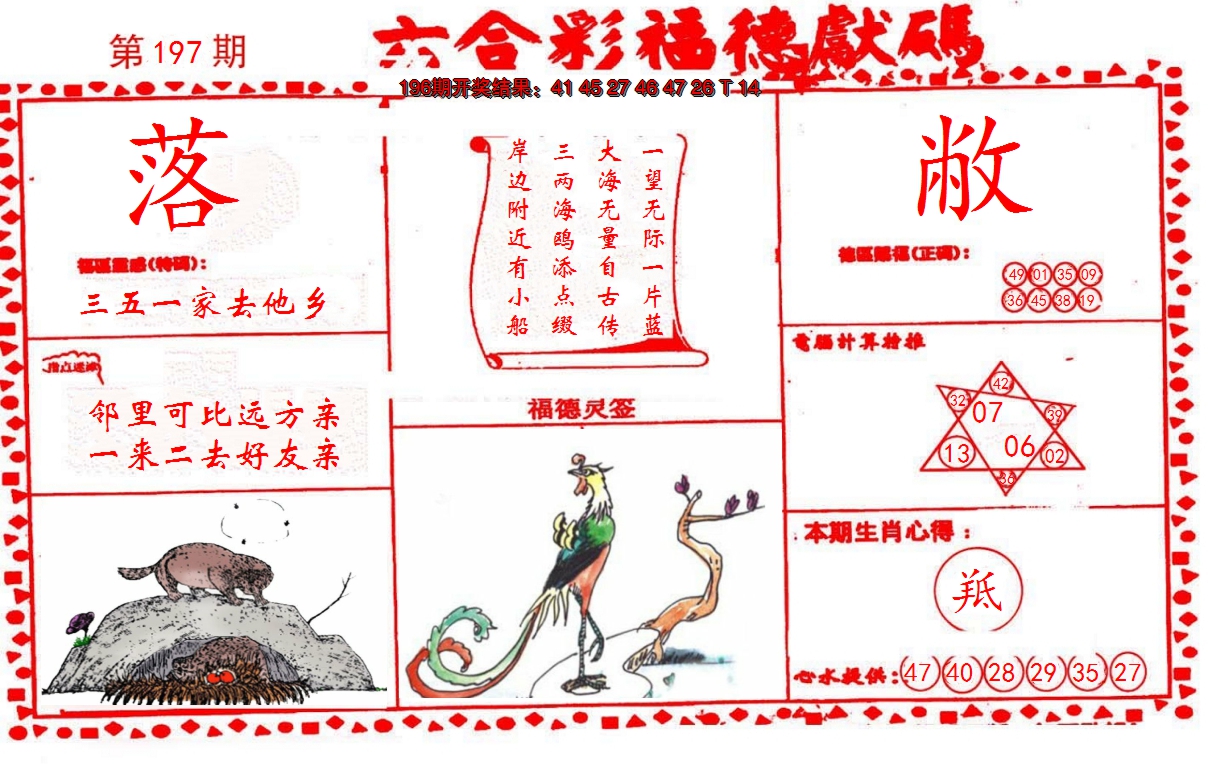 第197期
六合彩福德獻碼
196期开奖结果：41 45 27 46 47 26 T 14
落
福區靈感(特碼)：
三五一家去他乡
指点迷津
邻里可比远方亲
一来二去好友亲
一望无际一片蓝
大海无量自古传
三两海鸥添点缀
岸边附近有小船
福德灵签
敝
德區賜福(正碼)：
49 01 35 09
36 45 38 19
電腦計算檢推
42
32 07 39
13 06 02
36
本期生肖心得：
羝
心水提供：47 40 28 29 35 27